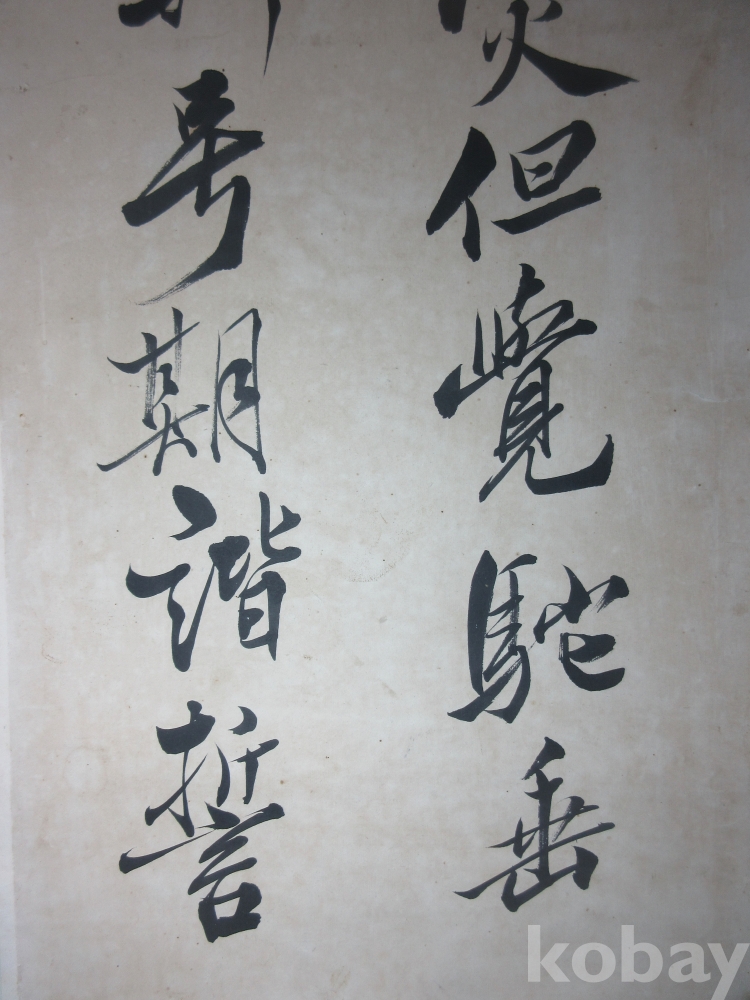 但覺駝垂
兮期諧誓
kobay